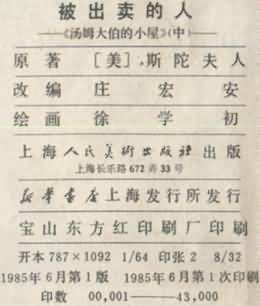 被出卖的人
——《汤姆大伯的小屋》(中)——
原著 [美]·斯陀夫人
改编 庄宏安
绘画 徐学初
上海人民美术出版社出版
上海长乐路672弄33号
新华书店上海发行所发行
宝山东方红印刷厂印刷
开本787×1092 1/64 印张2 8/32
1985年6月第1版 1985年6月第1次印刷
印数 00,001——43,000